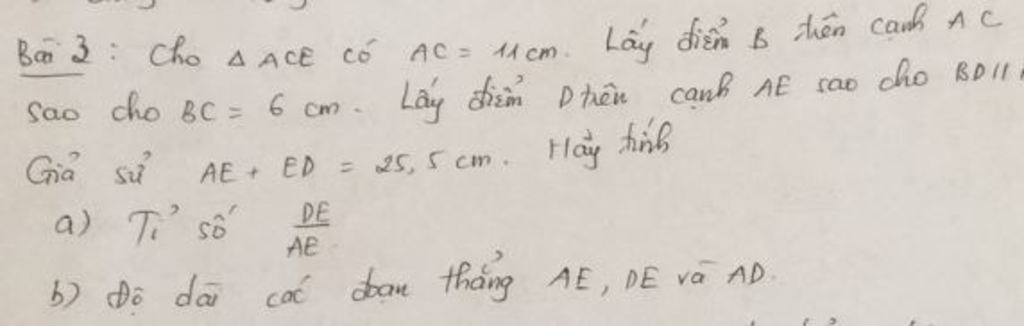 Bài 3 : Cho △ ACE có AC = 11 cm. Lấy điểm B trên cạnh AC
sao cho BC = 6 cm. Lấy điểm D trên cạnh AE sao cho BD //
Giả sử AE + ED = 25,5 cm. Hãy tính
a) Tỉ số DE/AE
b) Độ dài các đoạn thẳng AE, DE và AD.